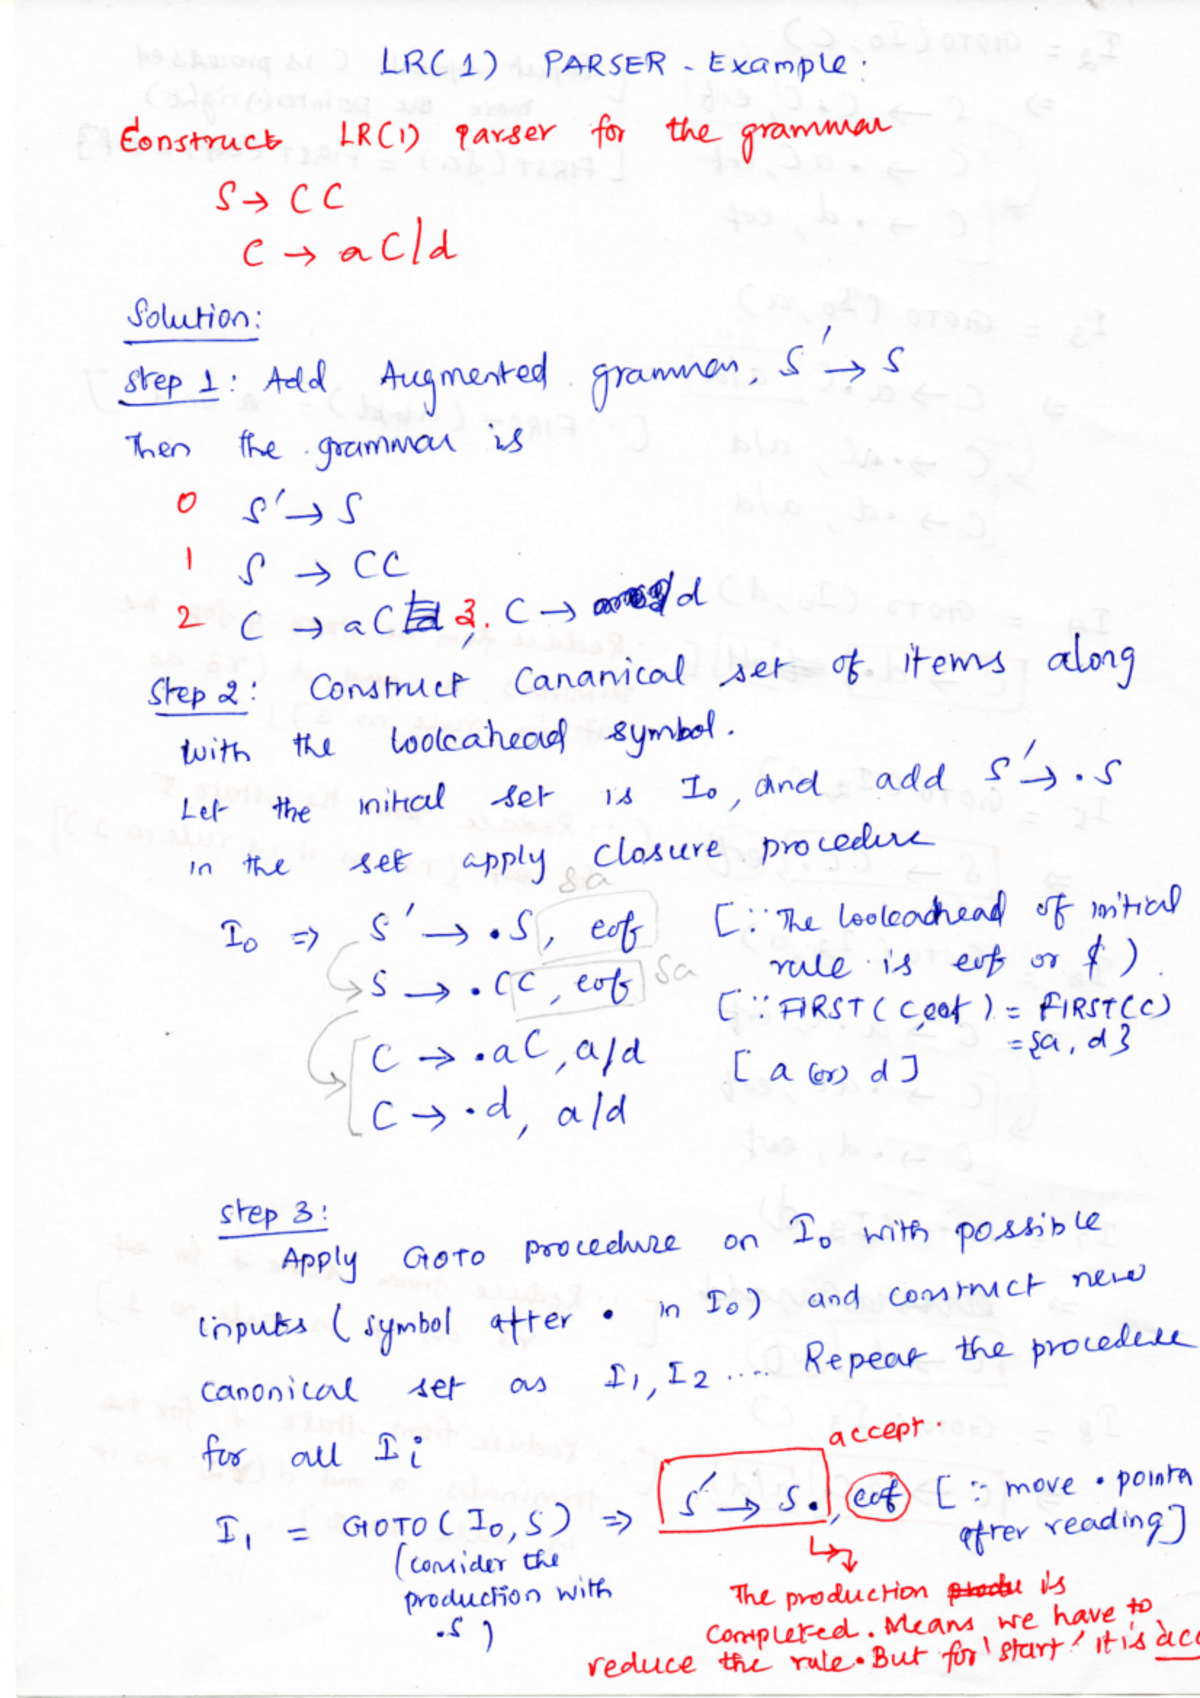 LR(1) PARSER - Example:
Construct LR(1) parser for the grammar
S → CC
C → aC/d
Solution:
Step 1: Add Augmented grammar, S' → S
Then the grammar is
0 S' → S
1 S → CC
2 C → aC, 3. C → d
Step 2: Construct Cananical set of items along
with the lookahead symbol.
Let the initial set is I0, and add S' → .S
in the set apply closure procedure
sa
I0 ⇒ S' → .S, eof [∵ The lookadhead of initial
rule is eof or $)
S → .CC, eof sa [∵ FIRST(C,eof) = FIRST(C)
= {a, d}
C → .aC, a/d [a (or) d]
C → .d, a/d
Step 3:
Apply GOTO procedure on I0 with possible
inputs (symbol after . in I0) and construct new
canonical set as I1, I2 .... Repeat the procedure
for all Ii
accept.
I1 = GOTO(I0, S) ⇒ S' → S., eof [∵ move . pointer
after reading]
(consider the
production with
.S)
The production is
completed. Means we have to
reduce the rule. But for 'start' it is acc